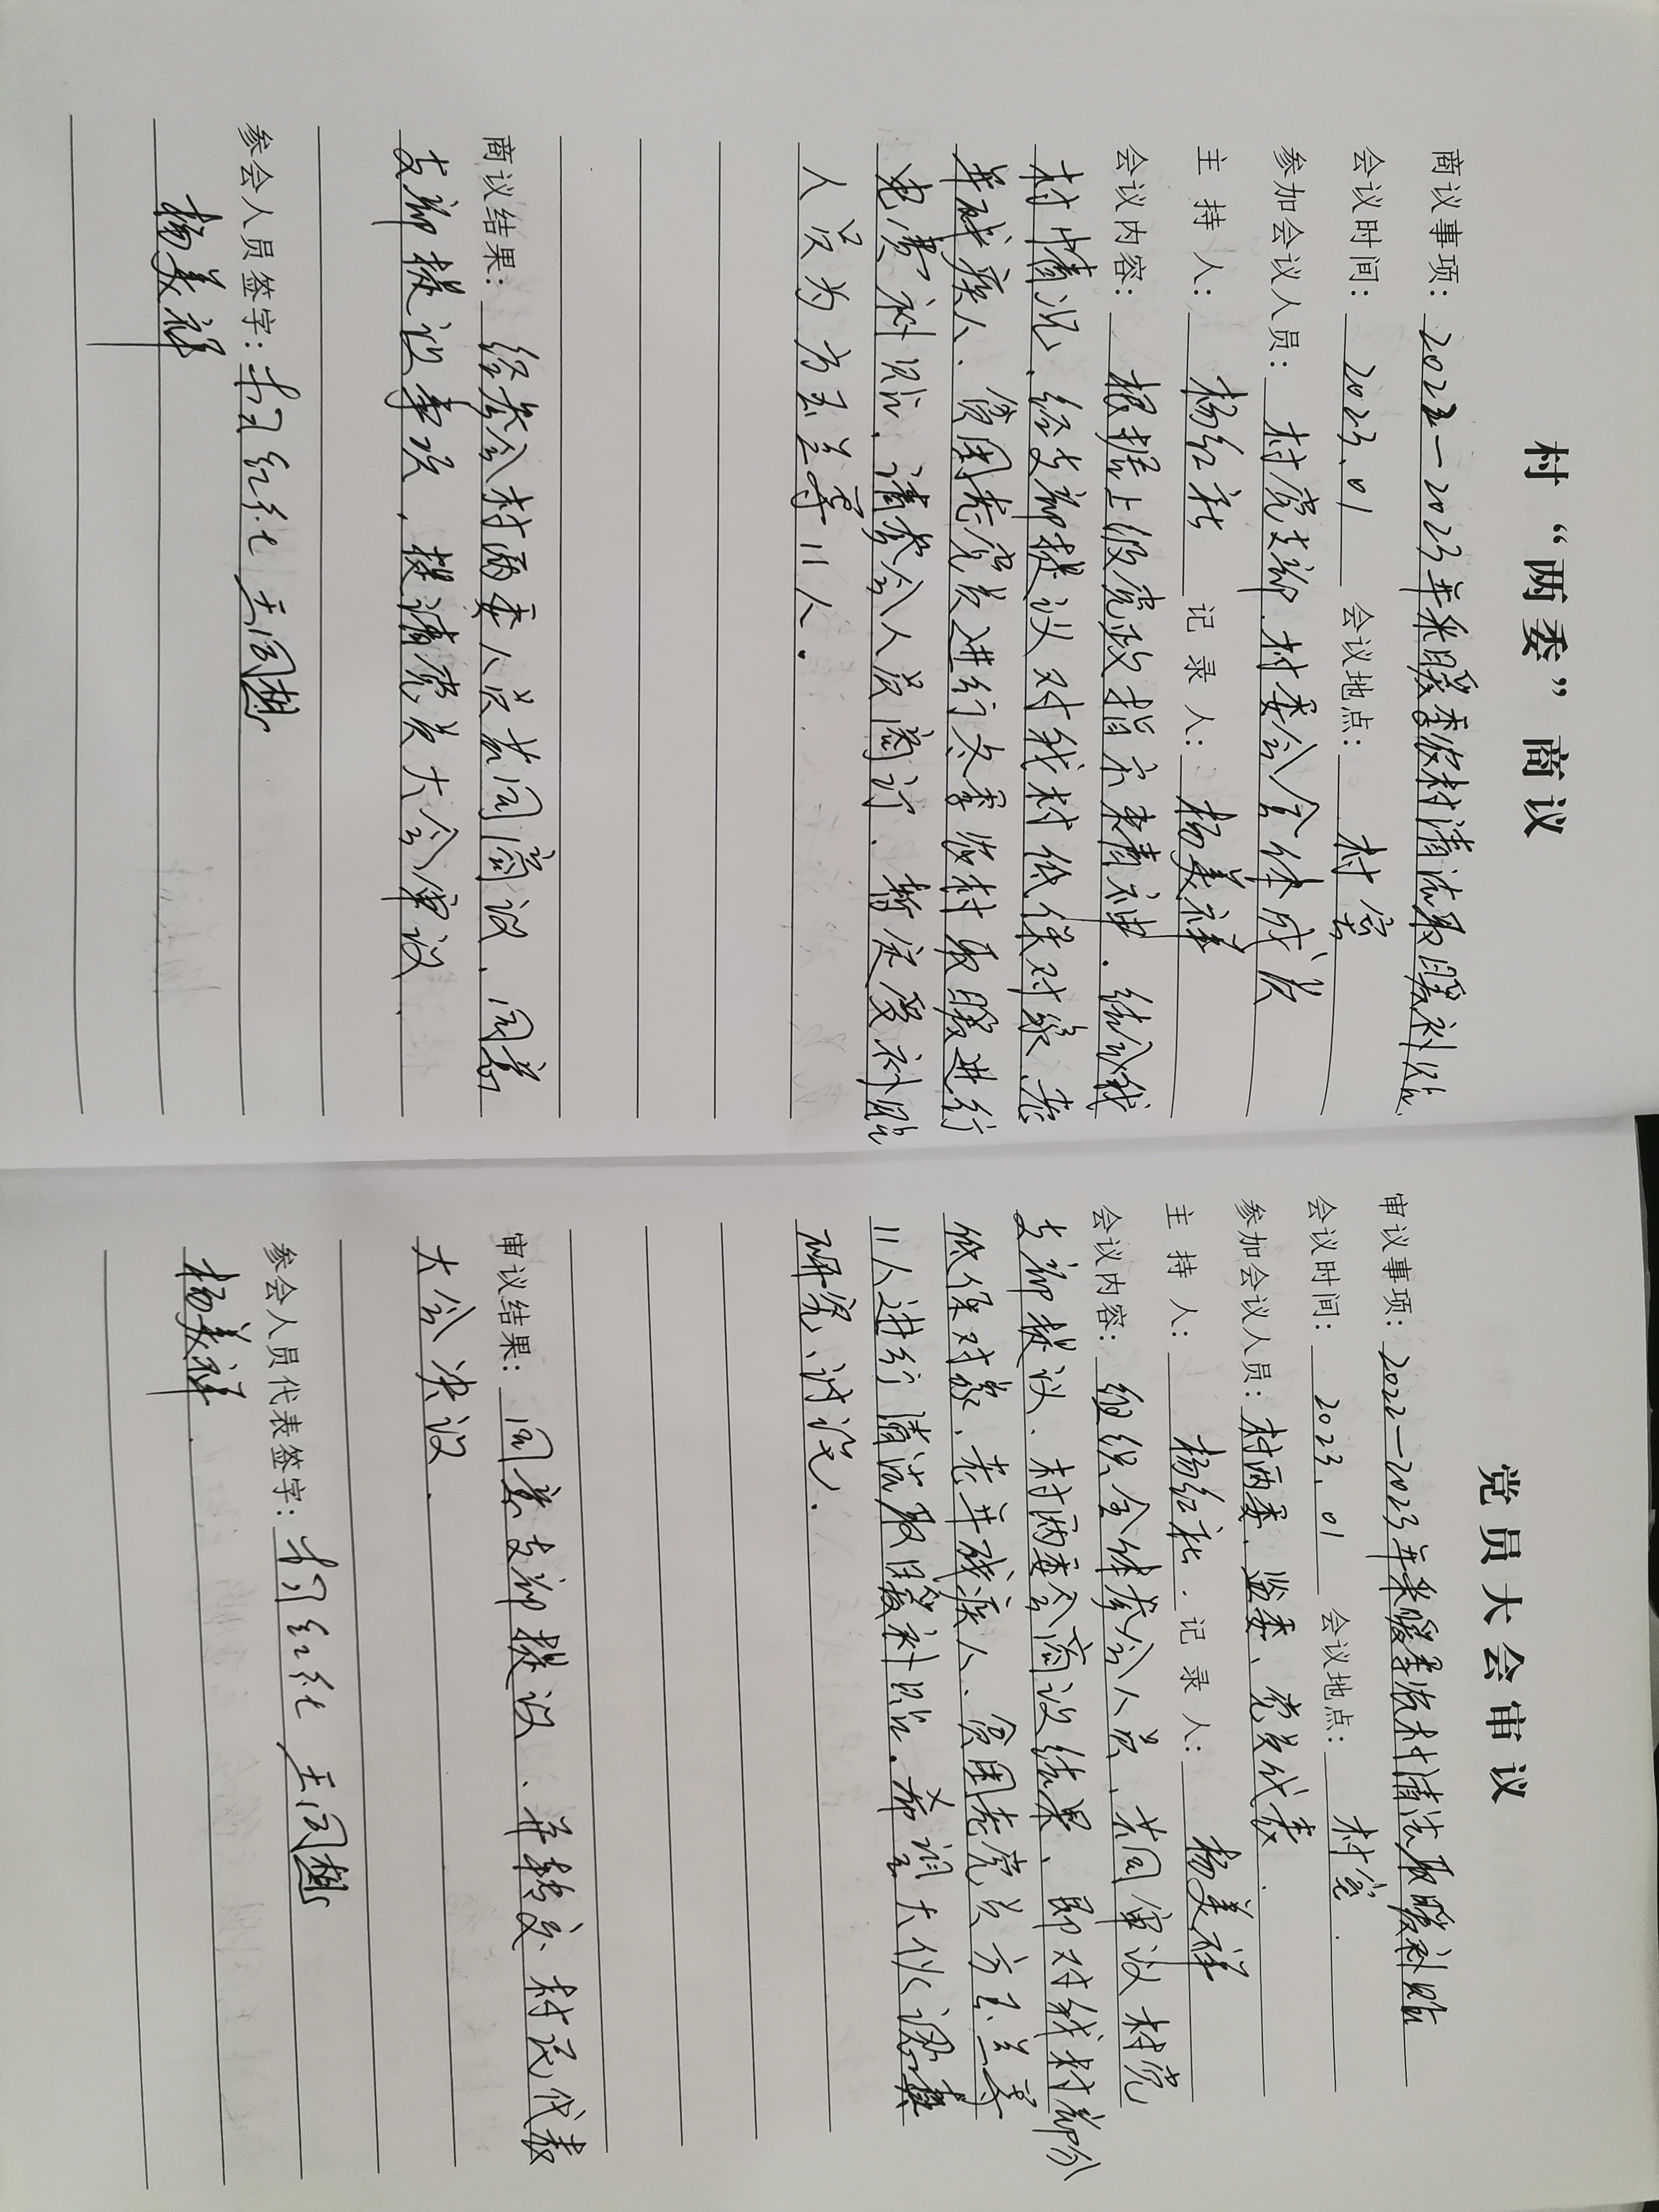 村“两委”商议
商议事项：2022—2023年采暖季农村清洁取暖补贴
会议时间：2023.01 会议地点：村室
参加会议人员：村党支部、村委会全体成员
主持人：杨红社 记录人：杨美祥
会议内容：根据上级党政指示来精神，结合我
村情况，经支部提议对我村低保对象、老
年残疾人、贫困老党员进行冬季农村取暖进行
电费补贴，请参会人员商订，暂定受补贴
人员为方玉兰等11人。
商议结果：经参会村两委人员共同商议，同意
支部提议事项，提请党员大会审议.
参会人员签字：杨红社 王同想
杨美祥
党员大会审议
审议事项：2022—2023年采暖季农村清洁取暖补贴
会议时间：2023.01 会议地点：村室.
参加会议人员：村两委、监委、党员代表.
主持人：杨红社. 记录人：杨美祥
会议内容：组织全体参会人员、共同审议村党
支部提议、村两委会商议结果、即对我村部分
低保对象、老年残疾人、贫困老党员方玉兰等
11人进行清洁取暖补贴。希望大伙认真
研究、讨论.
审议结果：同意支部提议、并转交村民代表
大会决议.
参会人员代表签字：杨红社 王同想
杨美祥.